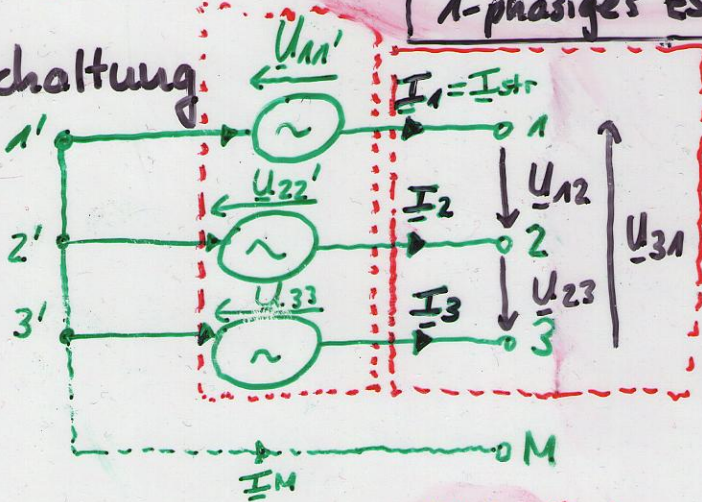 1-phasiges Es
chaltung
U11'
I1=Istr
1'
1
U22'
I2
U12
2'
2
U31
U33
I3
U23
3'
3
M
IM